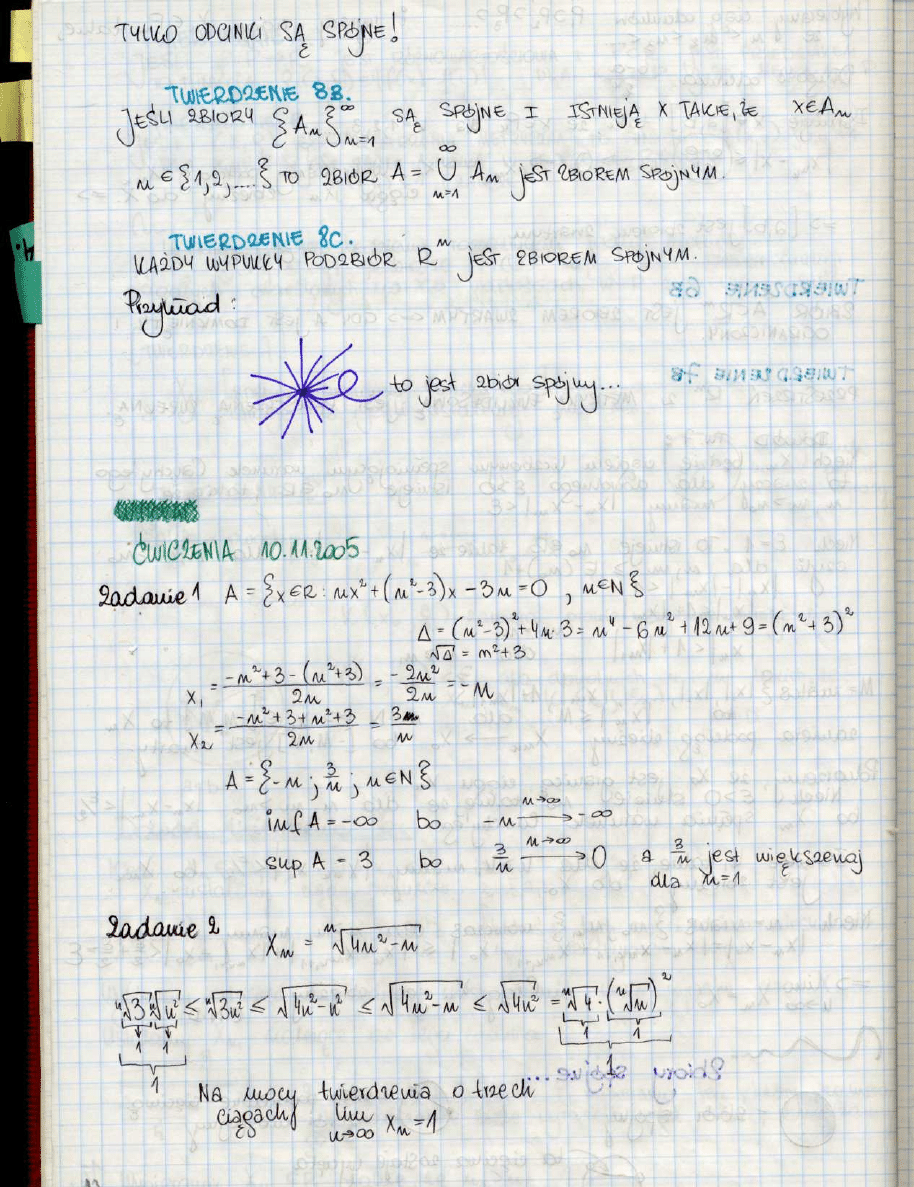 TYLKO ODCINKI SĄ SPÓJNE!
TWIERDZENIE 8B.
JEŚLI ZBIORY {Aₙ}ₙ₌₁^∞ SĄ SPÓJNE I ISTNIEJĄ X TAKIE, ŻE X∈Aₙ
n∈{1,2,....} TO ZBIÓR A = ∞∪n=1 Aₙ JEST ZBIOREM SPÓJNYM.
TWIERDZENIE 8C.
KAŻDY WYPUKŁY PODZBIÓR Rⁿ JEST ZBIOREM SPÓJNYM.
Przykład:
to jest zbiór spójny...
ĆWICZENIA 10.11.2005
Zadanie 1 A = {x∈R: nx²+(n²-3)x - 3n = 0 , n∈N}
Δ = (n²-3)²+4n·3 = n⁴ - 6n² + 12n + 9 = (n²+3)²
√Δ = n²+3
x₁ = (-n²+3-(n²+3))/2n = -2n²/2n = -n
x₂ = (-n²+3+n²+3)/2n = 3/n
A = {-n ; 3/n ; n∈N}
inf A = -∞ bo -n →(n→∞) -∞
sup A - 3 bo 3/n →(n→∞) 0 a 3/n jest większenaj
dla n=1
Zadanie 2
Xₙ = ⁿ√(4n²-n)
ⁿ√3 ⁿ√n² ≤ ⁿ√3n² ≤ √(4n²-n²) ≤ √(4n²-n) ≤ √4n² = ⁿ√4·(ⁿ√n)²
1 1 1 1
1 1
Na mocy twierdzenia o trzech
ciągach lim n→∞ Xₙ = 1